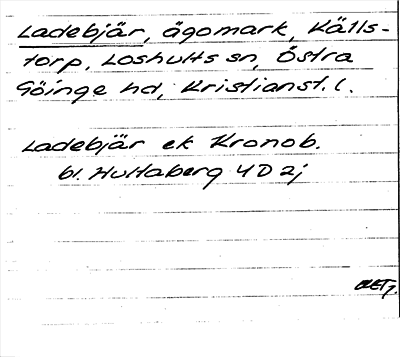 Ladebjär, ägomark, Källs-
torp, Loshults sn, Östra
Göinge hd, Kristianst. l.
Ladebjär ek Kronob.
bl. Hultaberg 4D2j